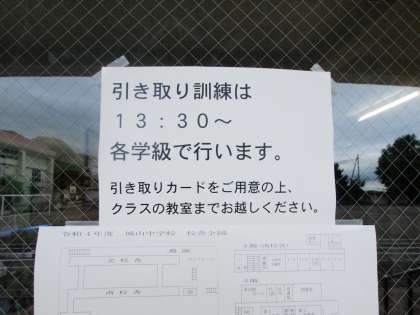 引き取り訓練は
１３：３０～
各学級で行います。
引き取りカードをご用意の上、
クラスの教室までお越しください。
令和４年度 城山中学校 校舎全図
北校舎
南校舎